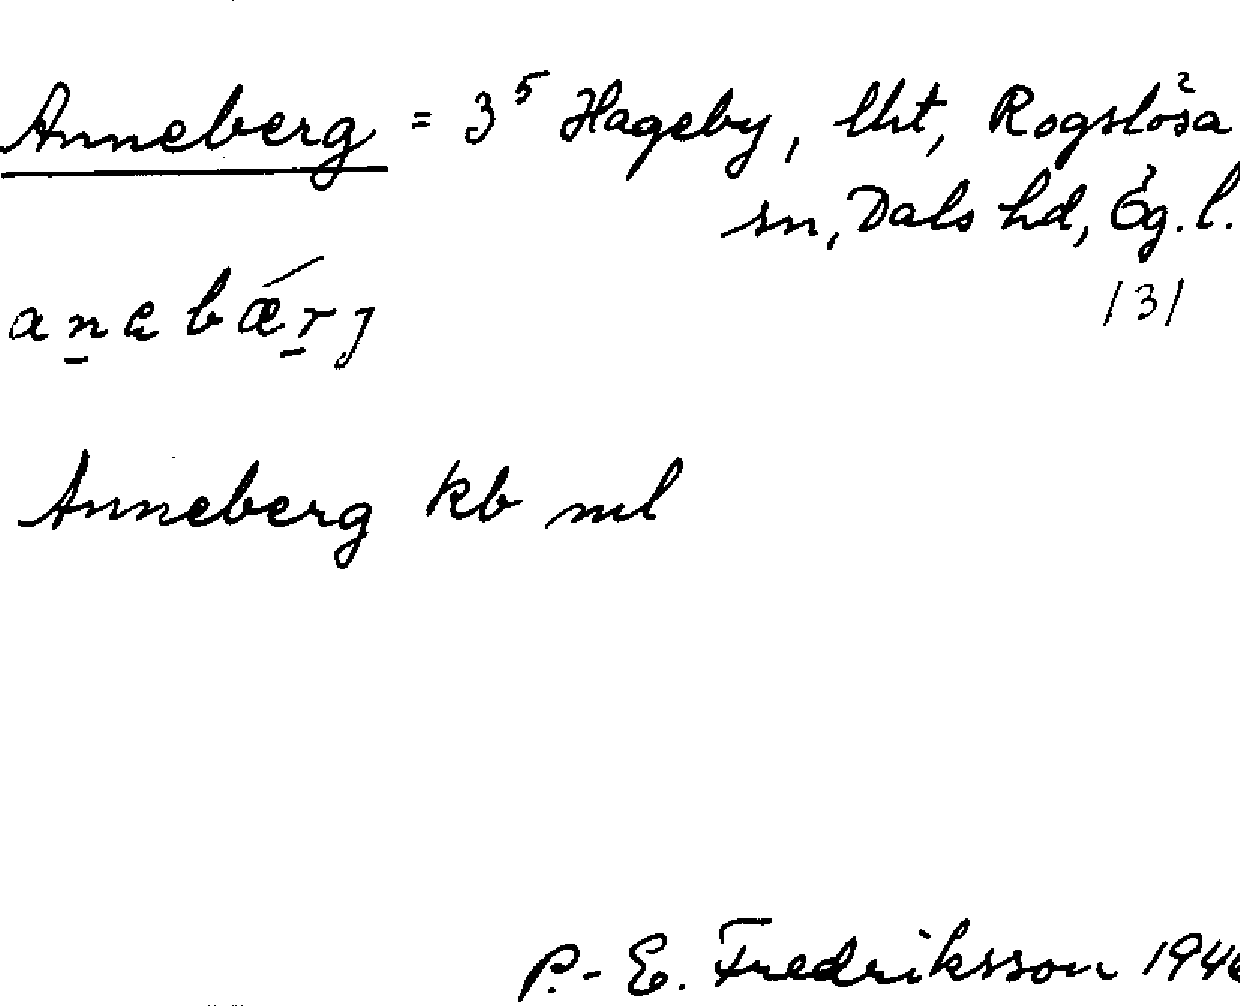 Anneberg = 3⁵ Hageby, lht, Rogslösa
sn, Dals hd, Ög. l.
/3/
a n e b ǽ r j
Anneberg kb ml
P.-E. Fredriksson